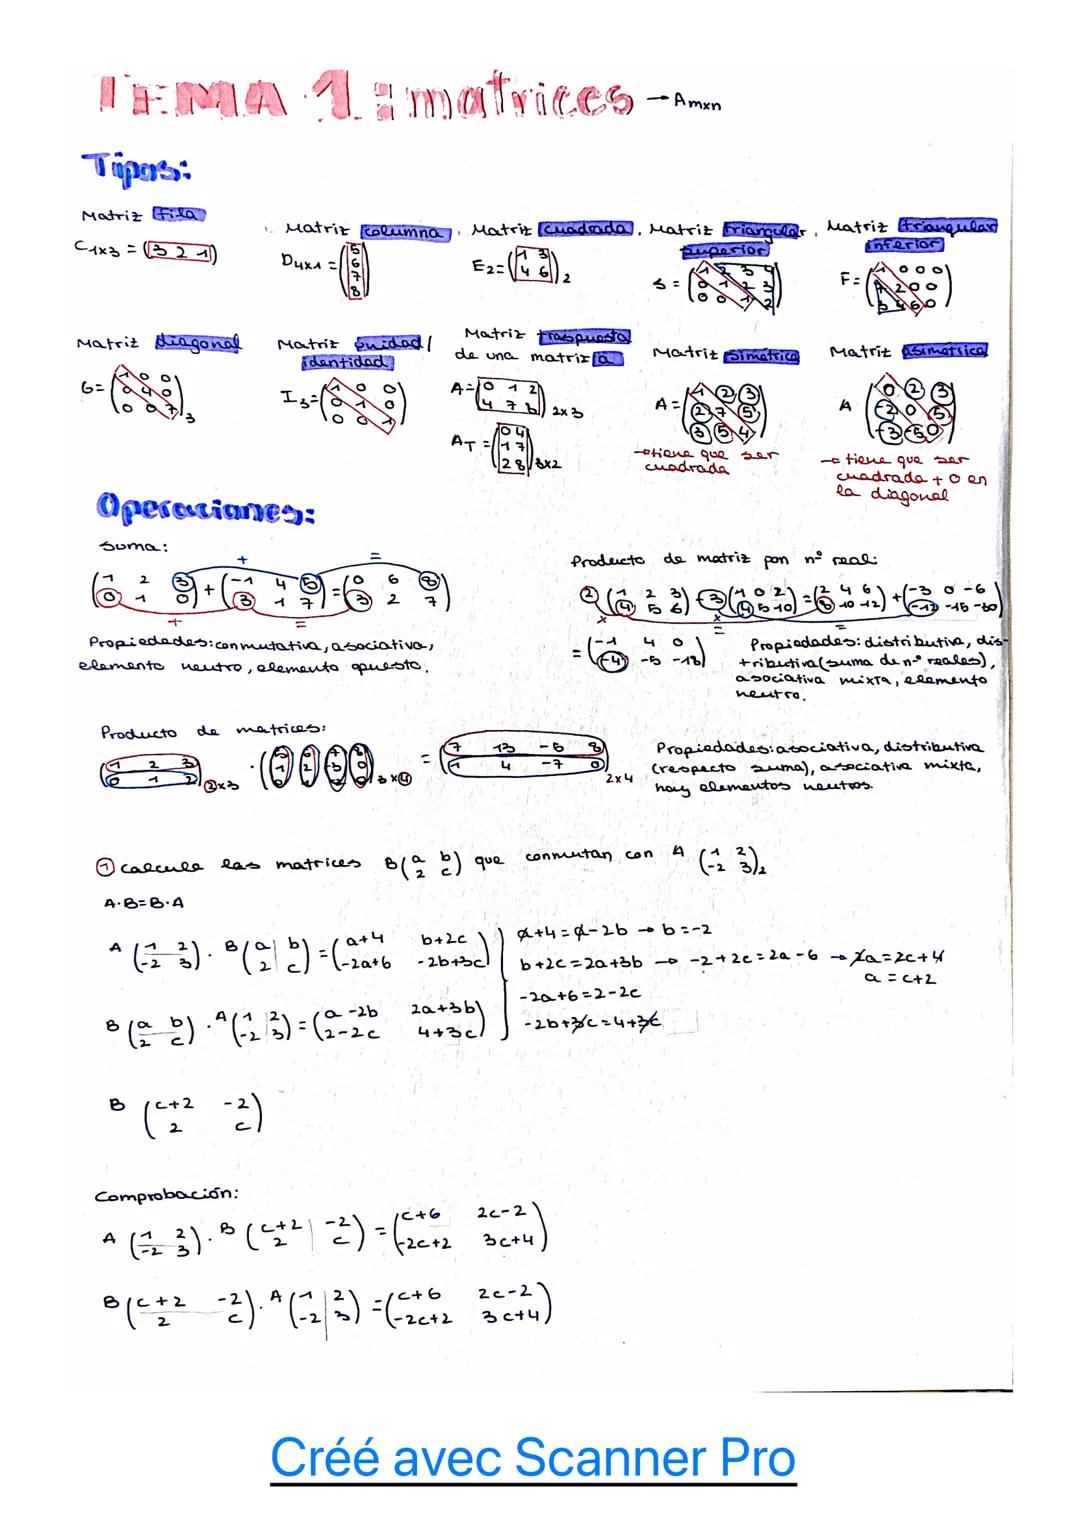 TEMA 1: matrices → Amxn
Tipos:
Matriz fila
C1x3 = (3 2 1)
Matriz columna
D4x1 = (5 6 7 8)
Matriz cuadrada
E2 = (1 3 / 4 6)2
Matriz triangular superior
S = (1 2 3 4 / 0 1 2 3 / 0 0 1 2)
Matriz triangular inferior
F =
Matriz diagonal
G = (1 0 0 / 0 4 0 / 0 0 7)3
Matriz unidad/ identidad
I3 = (1 0 0 / 0 1 0 / 0 0 1)
Matriz traspuesta
de una matriz a
A = (0 1 2 / 4 7 8) 2x3
AT = (0 4 / 1 7 / 2 8) 3x2
Matriz simétrica
A = (1 2 3 / 2 7 5 / 3 5 4)
→ tiene que ser
cuadrada
Matriz asimétrica
A (0 2 3 / -2 0 5 / -3 -5 0)
→ tiene que ser
cuadrada + 0 en
la diagonal
Operaciones:
Suma:
(1 2 3 / 0 1 0) + (-1 4 5 / 3 1 7) = (0 6 8 / 3 2 7)
Propiedades: conmutativa, asociativa,
elemento neutro, elemento opuesto.
Producto de matriz por nº real:
2 (1 2 3 / 4 5 6) - 3 (1 0 2 / 4 5 10) = (2 4 6 / 8 10 12) + (-3 0 -6 / -12 -15 -30)
= (-1 4 0 / -4 -5 -18)
Propiedades: distributiva, dis-
tributiva (suma de nº reales),
asociativa mixta, elemento
neutro.
Producto de matrices:
(1 2 3 / 0 1 2) 2x3 · 3x4 = (7 13 -5 8 / 1 4 -7 0) 2x4
Propiedades: asociativa, distributiva
(respecto suma), asociativa mixta,
hay elementos neutros.
① calcula las matrices B (a b / 2 c) que conmutan con A (1 2 / -2 3)2
A·B=B·A
A (1 2 / -2 3) · B (a b / 2 c) = (a+4 b+2c / -2a+6 -2b+3c)
B (a b / 2 c) · A (1 2 / -2 3) = (a-2b 2a+3b / 2-2c 4+3c)
a+4=a-2b → b=-2
b+2c=2a+3b → -2+2c=2a-6 → 2a=2c+4
a=c+2
-2a+6=2-2c
-2b+3c=4+3c
B (c+2 -2 / 2 c)
Comprobación:
A (1 2 / -2 3) · B (c+2 -2 / 2 c) = (c+6 2c-2 / -2c+2 3c+4)
B (c+2 -2 / 2 c) · A (1 2 / -2 3) = (c+6 2c-2 / -2c+2 3c+4)
Créé avec Scanner Pro